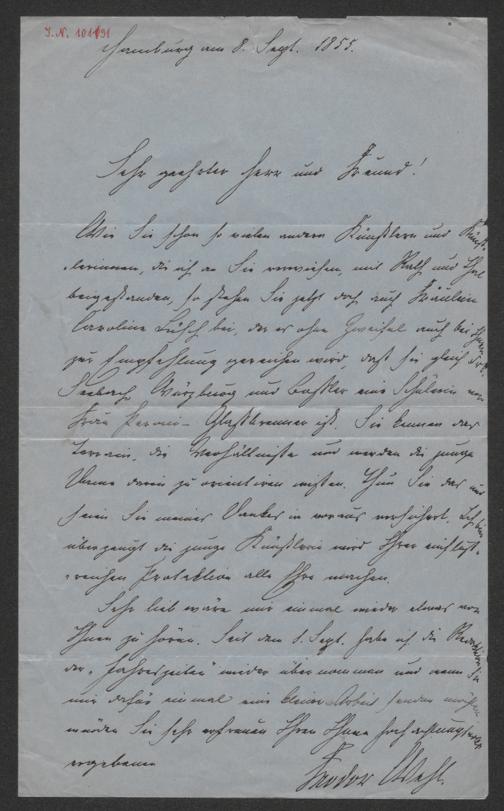 J. N. 101191
Hamburg am 8. Sept. 1855.
Sehr geehrter Herr und Freund!
Wie Sie schon so vielen andern Künstlern und Künst-
lerinnen, die ich an Sie verwiesen, mit Rath und That
beigestanden, so stehen Sie jetzt doch auch Fräulein
Caroline bei, der es ohne Zweifel auch bei Ihnen
zur Empfehlung gereichen wird, daß sie gleich der
Seebach, Würzburg und eine Schülerin von
Frau Peroni-Glaßbrenner ist. Sie kennen das
Terrain, die Verhältnisse und werden die junge
Dame darin zu orientiren wissen. Thun Sie das und
sein Sie meines Dankes im voraus versichert. Ich bin
überzeugt die junge Künstlerin wird Ihrer einfluß-
reichen Protektion alle Ehre machen.
Sehr lieb wäre mir einmal wieder etwas von
Ihnen zu hören. Seit dem 1. Sept. habe ich die Redaktion
der "Jahreszeiten" wieder übernommen und wenn Sie
mir dafür einmal eine kleine Arbeit senden möchten,
würden Sie sehr erfreuen Ihren Ihnen hochachtungsvoll
ergebenen
Feodor Wehl.